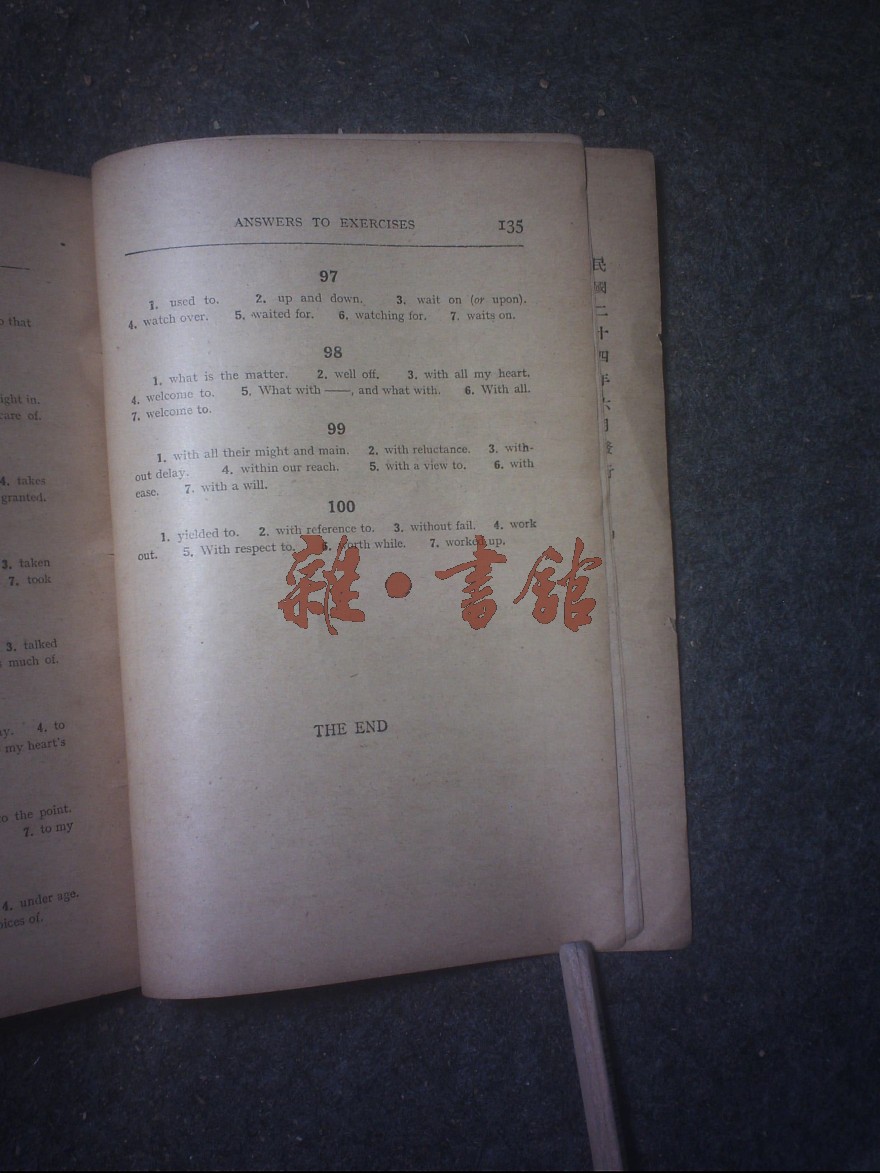 o that
ight in.
care of.
4. takes
granted.
3. taken
7. took
3. talked
s much of.
ay. 4. to
my heart's
to the point.
7. to my
4. under age.
oices of.
ANSWERS TO EXERCISES 135
97
1. used to. 2. up and down. 3. wait on (or upon).
4. watch over. 5. waited for. 6. watching for. 7. waits on.
98
1. what is the matter. 2. well off. 3. with all my heart.
4. welcome to. 5. What with ——, and what with. 6. With all.
7. welcome to.
99
1. with all their might and main. 2. with reluctance. 3. with-
out delay. 4. within our reach. 5. with a view to. 6. with
ease. 7. with a will.
100
1. yielded to. 2. with reference to. 3. without fail. 4. work
out. 5. With respect to. 6. worth while. 7. worked up.
雜●書館
THE END
民國二十四年六月發行